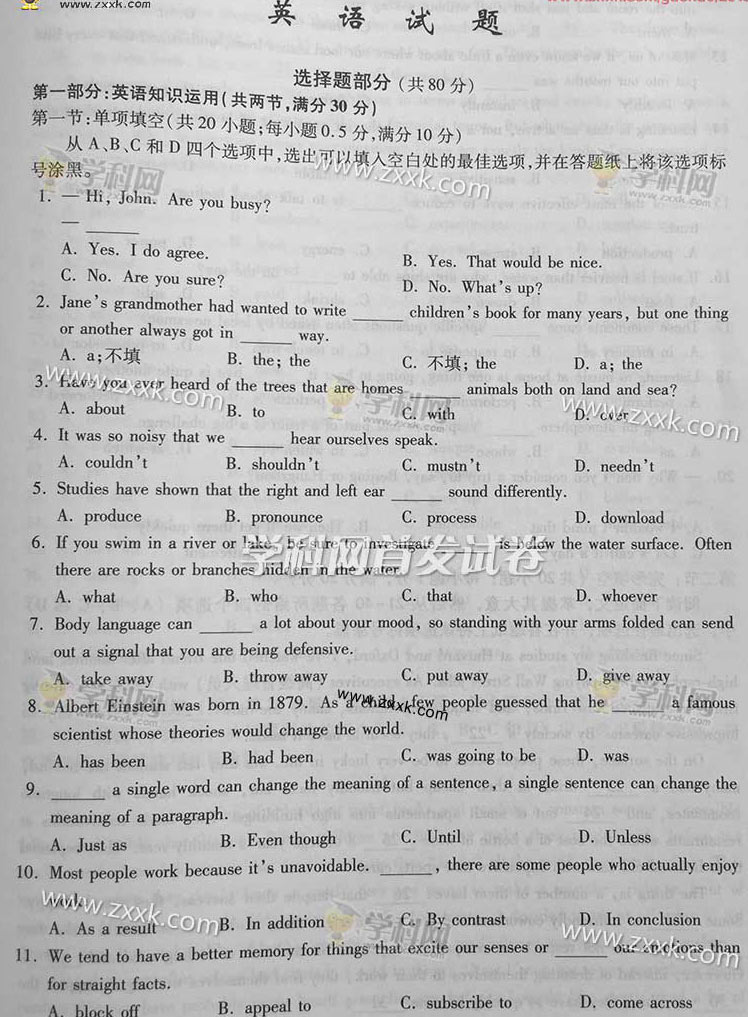 www.zxxk.com
英 语 试 题
选择题部分 (共80分)
第一部分:英语知识运用(共两节,满分30分)
第一节:单项填空(共20小题;每小题0.5分,满分10分)
从A、B、C和D四个选项中,选出可以填入空白处的最佳选项,并在答题纸上将该选项标
号涂黑。
1. — Hi, John. Are you busy?
— ______
A. Yes. I do agree. B. Yes. That would be nice.
C. No. Are you sure? D. No. What's up?
2. Jane's grandmother had wanted to write ______ children's book for many years, but one thing
or another always got in ______ way.
A. a;不填 B. the; the C. 不填; the D. a; the
3. Have you ever heard of the trees that are homes ______ animals both on land and sea?
A. about B. to C. with D. over
4. It was so noisy that we ______ hear ourselves speak.
A. couldn't B. shouldn't C. mustn't D. needn't
5. Studies have shown that the right and left ear ______ sound differently.
A. produce B. pronounce C. process D. download
6. If you swim in a river or lake, be sure to investigate ______ is below the water surface. Often
there are rocks or branches hidden in the water.
A. what B. who C. that D. whoever
7. Body language can ______ a lot about your mood, so standing with your arms folded can send
out a signal that you are being defensive.
A. take away B. throw away C. put away D. give away
8. Albert Einstein was born in 1879. As a child, few people guessed that he ______ a famous
scientist whose theories would change the world.
A. has been B. had been C. was going to be D. was
9. ______ a single word can change the meaning of a sentence, a single sentence can change the
meaning of a paragraph.
A. Just as B. Even though C. Until D. Unless
10. Most people work because it's unavoidable. ______, there are some people who actually enjoy
work.
A. As a result B. In addition C. By contrast D. In conclusion
11. We tend to have a better memory for things that excite our senses or ______ our emotions than
for straight facts.
A. block off B. appeal to C. subscribe to D. come across
学科网
www.zxxk.com
学科网
www.zxxk.com
学科网首发试卷
学科网
www.zxxk.com
学科网
www.zxxk.com
学科网
www.zxxk.com